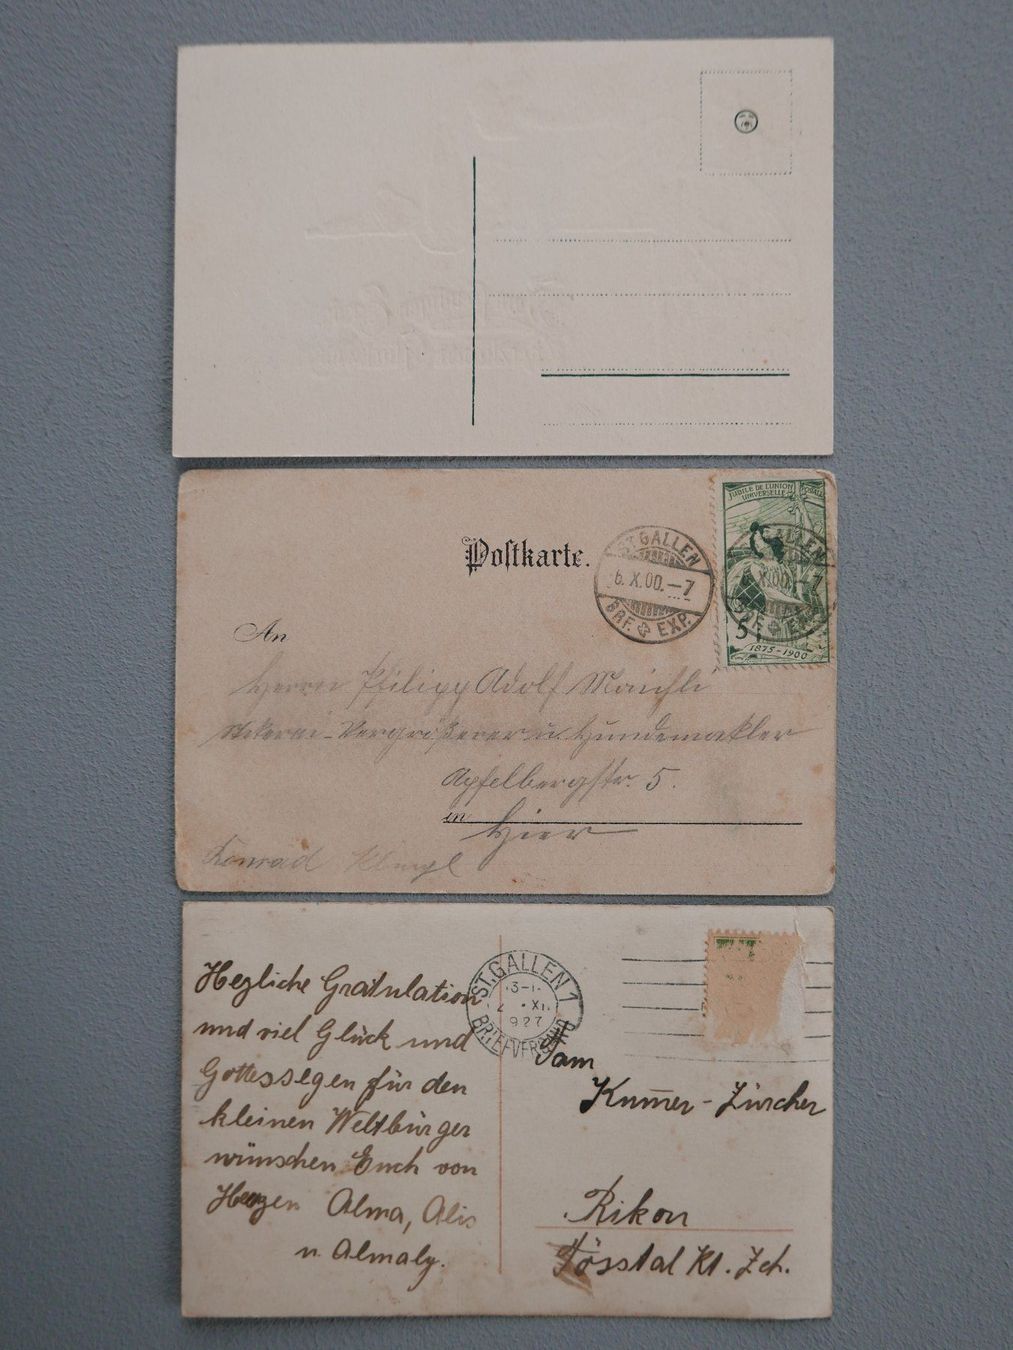 Postkarte.
ST. GALLEN
6. X. 00. – 7
BRF. EXP.
JUBILÉ DE L'UNION POSTALE
UNIVERSELLE
ST. GALLEN
X. 00. – 7
BRF. EXP.
5
1875–1900
An
Herrn Philipp Adolf
u. Hundemakler
Apfelbergstr. 5.
in Hier
Konrad
Hezliche Gratulation
und viel Glück und
Gottessegen für den
kleinen Weltbürger
wünschen Euch von
Herzen Alma, Alis
u. Almaly.
ST. GALLEN 1
XI.
927
BRIEFVERSAND
Fam
Kum̅er-Zürcher
Rikon
Tösstal Kt. Zch.